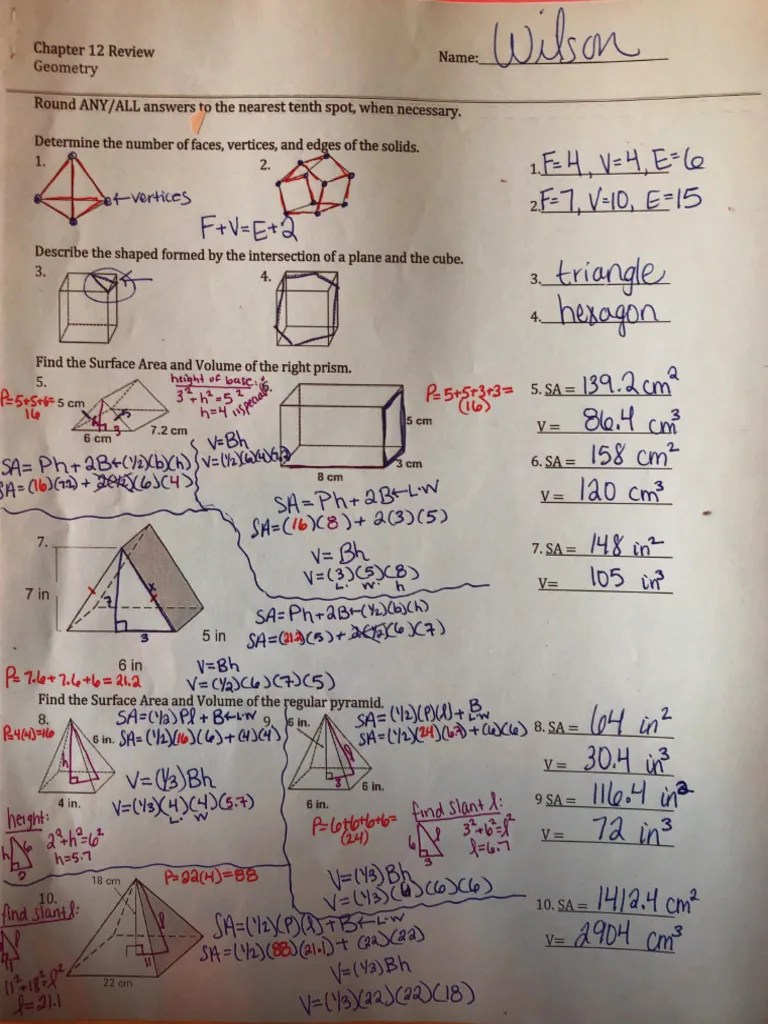 Chapter 12 Review
Geometry
Name: Wilson
Round ANY/ALL answers to the nearest tenth spot, when necessary.
Determine the number of faces, vertices, and edges of the solids.
1.
2.
← vertices
F+V=E+2
1. F=4, V=4, E=6
2. F=7, V=10, E=15
Describe the shaped formed by the intersection of a plane and the cube.
3.
4.
3. triangle
4. hexagon
Find the Surface Area and Volume of the right prism.
5.
P=5+5+6=
16
5 cm
6 cm
3
7.2 cm
height of base:
3²+h²=5²
h=4
SA= Ph+2B←(1/2)(b)(h)
SA=(16)(7.2)+2(1/2)(6)(4)
V=Bh
P=5+5+3+3=
(16)
5 cm
3 cm
8 cm
SA=Ph+2B←L·W
SA=(16)(8)+2(3)(5)
V=Bh
V=(3)(5)(8)
L. W. h
5. SA = 139.2 cm²
V = 86.4 cm³
6. SA = 158 cm²
V = 120 cm³
7.
7 in
7
3
5 in
6 in
P= 7.6+7.6+6=21.2
SA=Ph+2B←(1/2)(b)(h)
SA=(21.2)(5)+2(1/2)(6)(7)
V=Bh
V=(1/2)(6)(7)(5)
7. SA = 148 in²
V= 105 in³
Find the Surface Area and Volume of the regular pyramid.
8.
P=4(4)=16
6 in.
h
4 in.
SA=(1/2)Pl+B←L·W
SA=(1/2)(16)(6)+(4)(4)
V=(1/3)Bh
V=(1/3)(4)(4)(5.7)
L. W
height:
h
6
2
2²+h²=6²
h=5.7
9.
6 in.
l
3
6 in.
6 in.
SA=(1/2)(P)(l)+B
L·W
SA=(1/2)(24)(6.7)+(6)(6)
P=6+6+6+6=
(24)
find slant l:
6
l
3
3²+6²=l²
l=6.7
V=(1/3)Bh
V=(1/3)(6)(6)(6)
8. SA = 64 in²
V = 30.4 in³
9 SA = 116.4 in²
V = 72 in³
10.
18 cm
P=22(4)=88
l
11
22 cm
find slant l:
11²+18²=l²
l=21.1
SA=(1/2)(P)(l)+B←L·W
SA=(1/2)(88)(21.1)+(22)(22)
V=(1/3)Bh
V=(1/3)(22)(22)(18)
10. SA = 1412.4 cm²
V= 2904 cm³